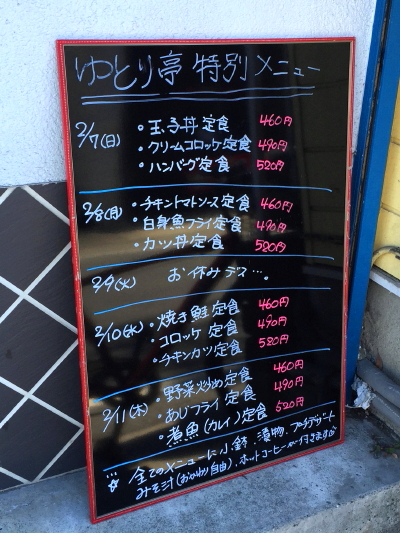 ゆとり亭 特別メニュー
2/7(日) ・玉子丼定食 460円
・クリームコロッケ定食 490円
・ハンバーグ定食 520円
2/8(月) ・チキントマトソース定食 460円
・白身魚フライ定食 490円
・カツ丼定食 520円
2/9(火) お休みデス…。
2/10(水) ・焼き鮭定食 460円
・コロッケ定食 490円
・チキンカツ定食 520円
2/11(木) ・野菜炒め定食 460円
・あじフライ定食 490円
・煮魚(カレイ)定食 520円
☆全てのメニューに小鉢、漬物、プチデザート
みそ汁(おかわり自由)、ホットコーヒーが付きます